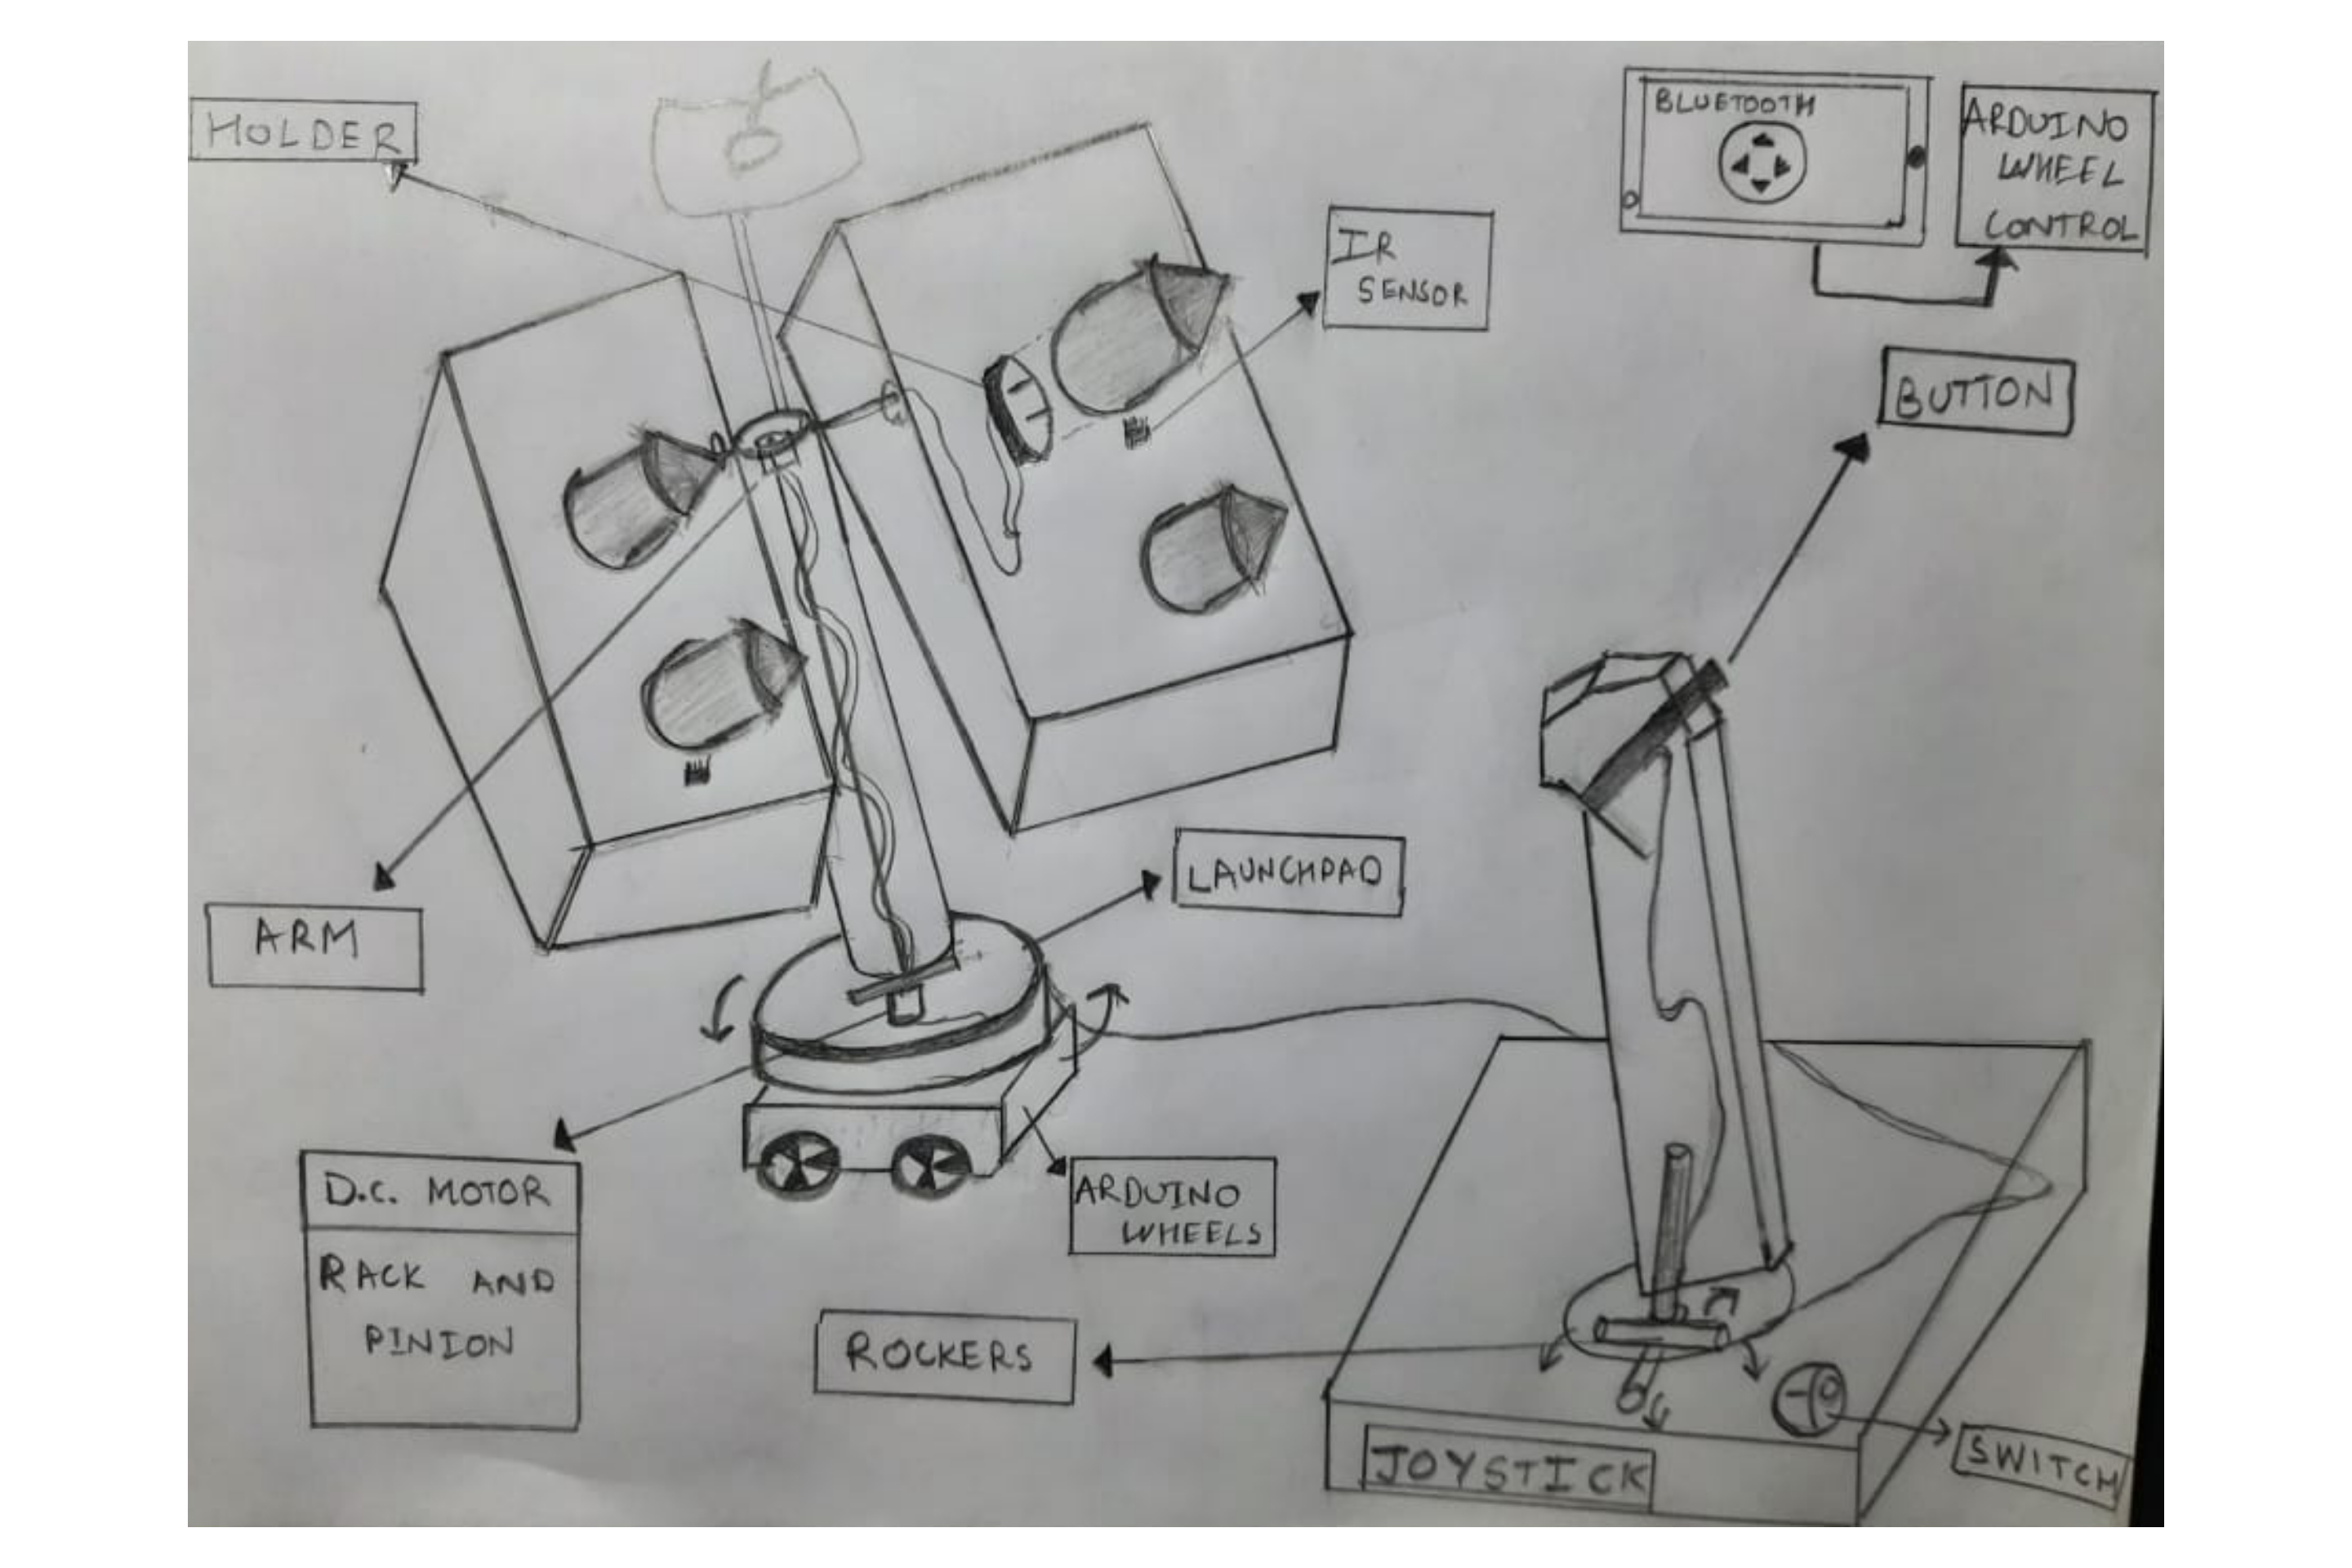 HOLDER
BLUETOOTH
ARDUINO
WHEEL
CONTROL
IR
SENSOR
BUTTON
LAUNCHPAD
ARM
D.C. MOTOR
RACK AND
PINION
ARDUINO
WHEELS
ROCKERS
JOYSTICK
SWITCH